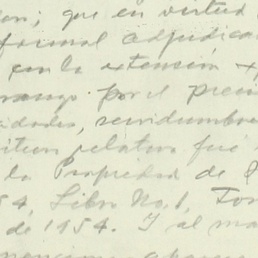 que en virtud
formal adjudica
con la extensión
rango por el preci
dades, servidumbre
relativo fué
la Propiedad de
54, Libro No. 1, Tom
de 1954. Y al ma